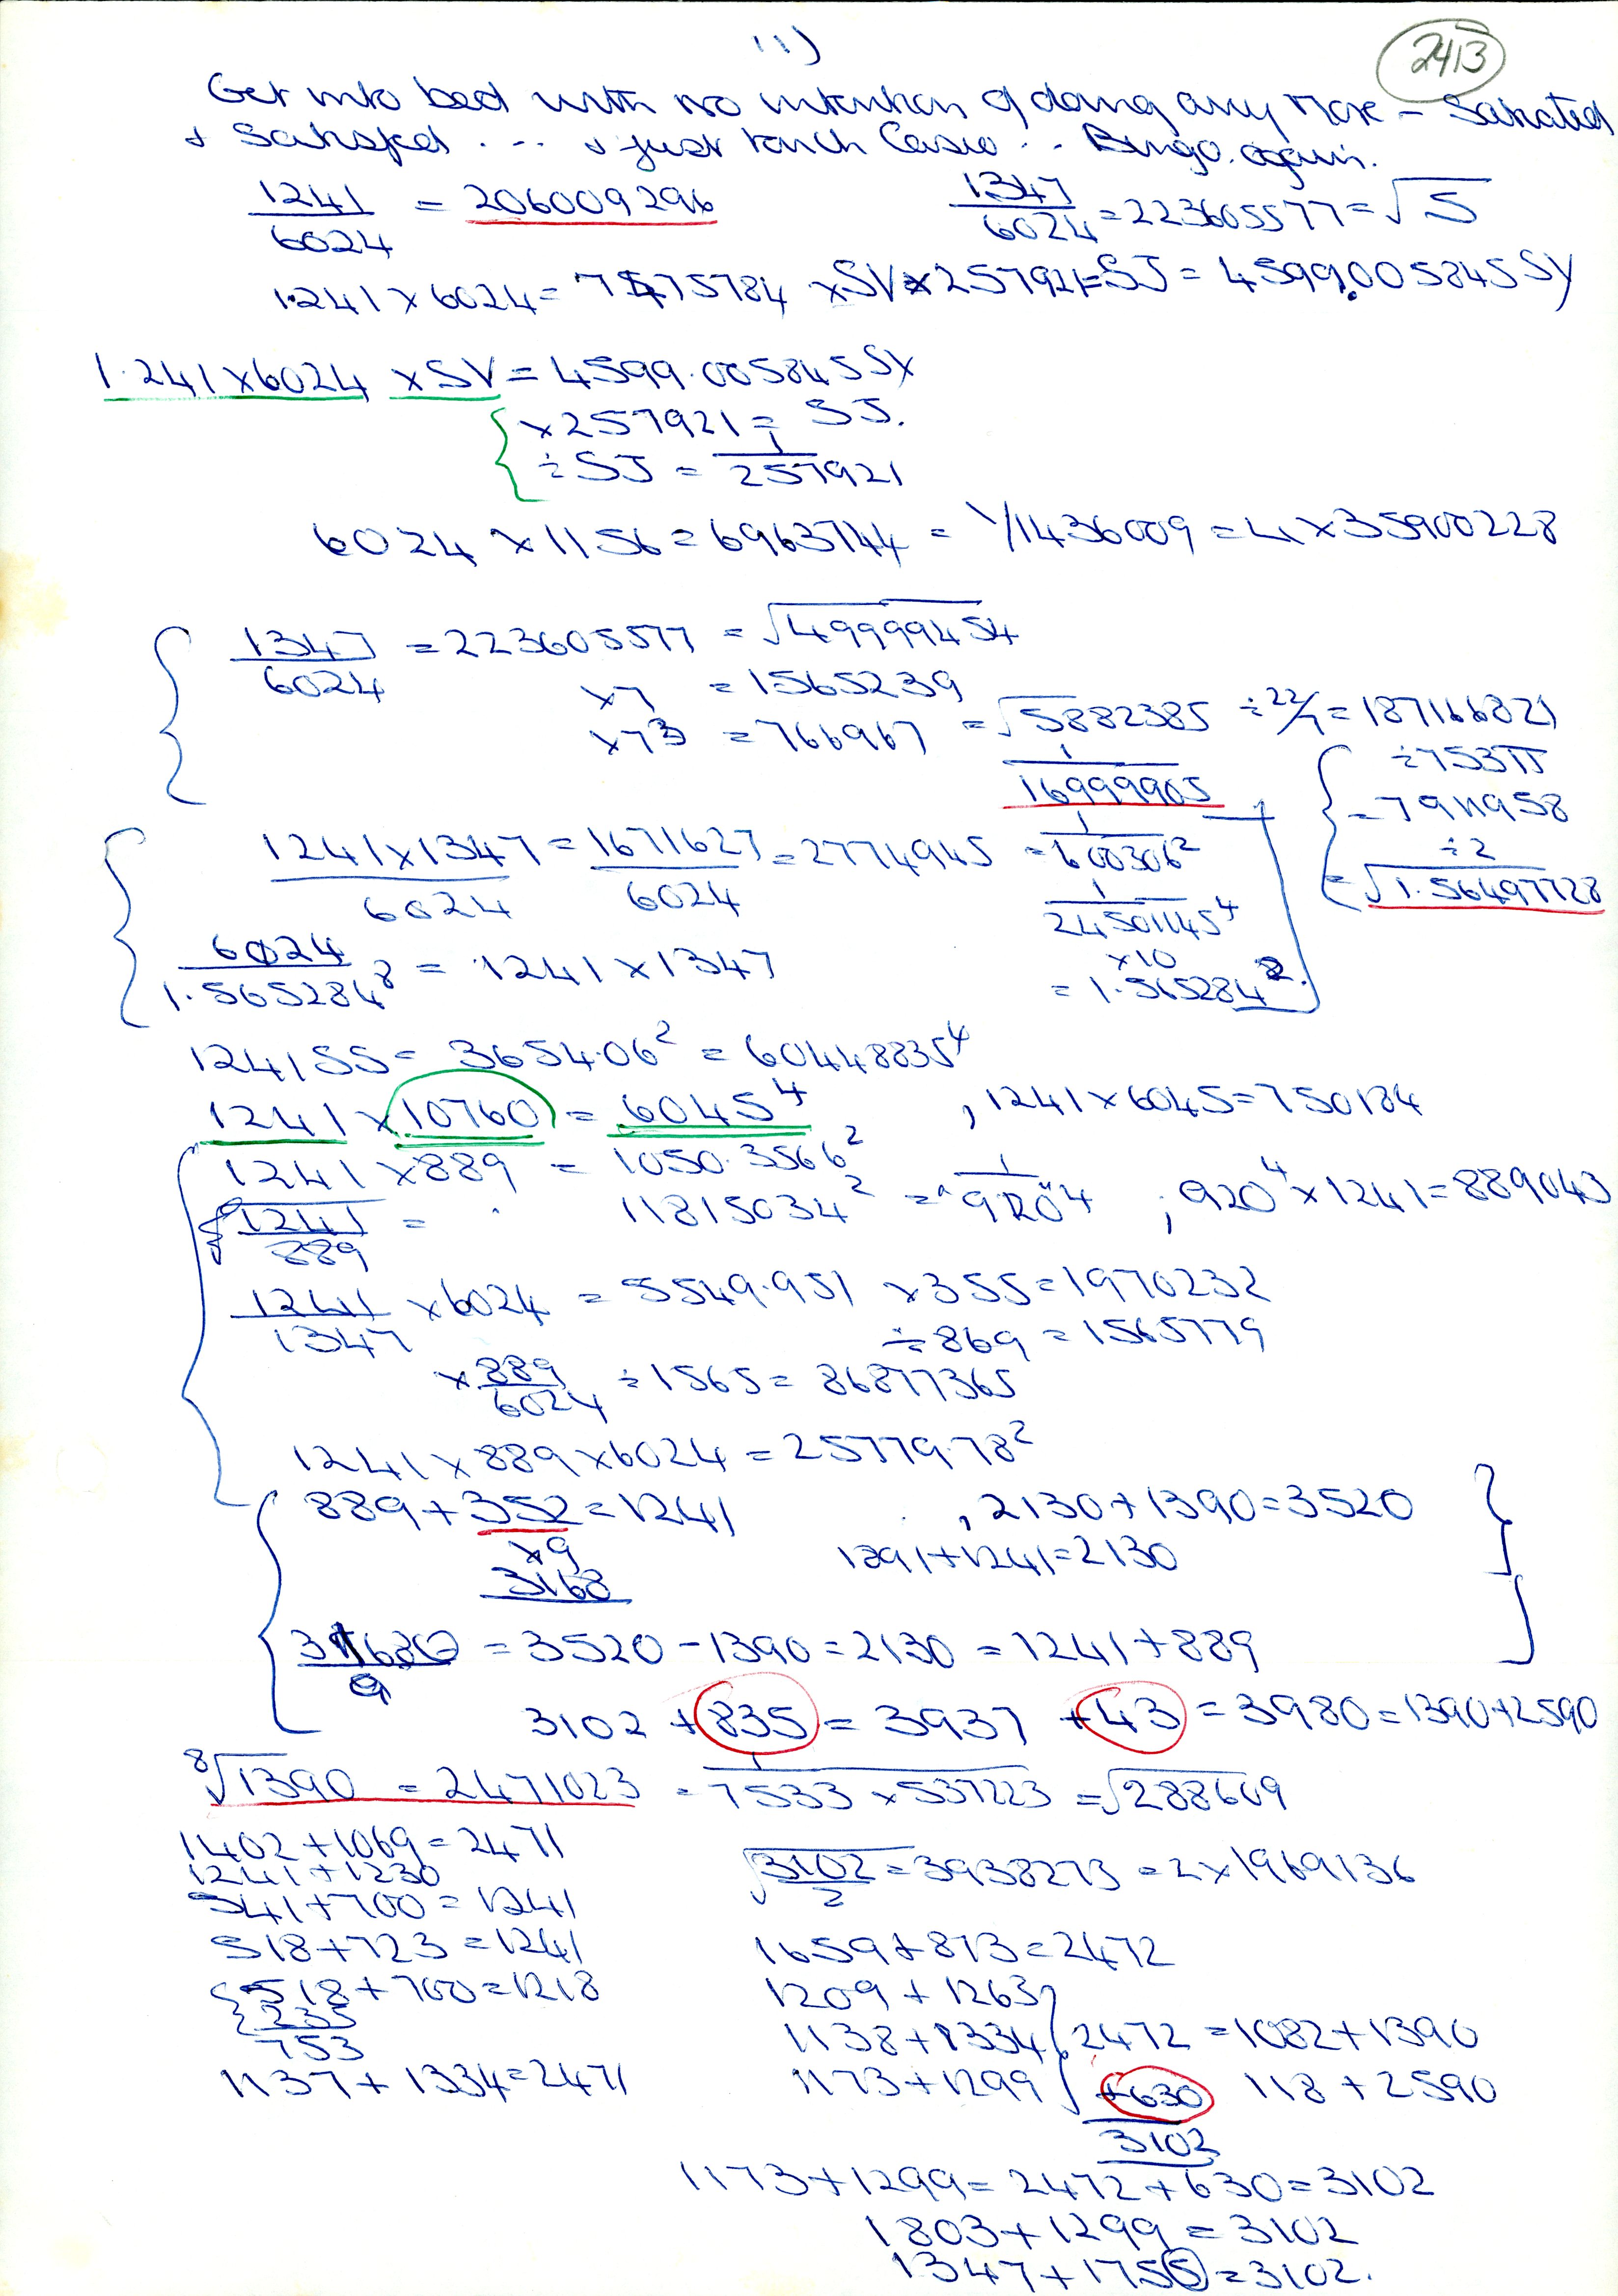 11)
2413
Get into bed with no intention of doing any more – Satiated
+ Satisfied ... + just touch Casio .. Bingo. again.
1241/6024 = 206009296
1347/6024 = 223605577 = √5
1.241 x 6024 = 7475784 x SV x 257921 = SJ = 4599.005845 Sy
1.241 x 6024 x SV = 4599.005845 Sx
x 257921 = SJ.
÷ SJ = 1/257921
6024 x 1156 = 6963744 = 1/1436009 = 4 x 35900228
1347/6024 = 223605577 = √499999454
x7 = 1565239
x73 = 766967 = √5882385 ÷ 22/7 = 187166821
1/16999905
÷ 753π
= 7911958
÷ 2
= √1.56497728
1241 x 1347/6024 = 1671627/6024 = 2774945 = 1/600306²
1/24501145⁴
x10
= 1.565284⁸.
6024/1.565284⁸ = 1241 x 1347
1241SS = 3654.06² = 60448835⁴
1241 x 10760 = 6045⁴ , 1241 x 6045 = 750184
1241 x 889 = 1050.3566²
√1241/889 = 11815034² = 1/920⁴ ; 920⁴ x 1241 = 889043
1241/1347 x 6024 = 5549.951 x 355 = 1970232
÷ 869 = 1565779
x 889/6024 ÷ 1565 = 86877365
1241 x 889 x 6024 = 25779.78²
889 + 352 = 1241 , 2130 + 1390 = 3520
x9
1291 + 1241 = 2130
3168
31680/9 = 3520 - 1390 = 2130 = 1241 + 889
3102 + 835 = 3937 + 43 = 3980 = 1390 + 2590
⁸√1390 = 2471023 = 1/7533 x 537223 = √288609
1402 + 1069 = 2471
1241 + 1230
√3102/2 = 3938273 = 2 x 1969136
541 + 700 = 1241
518 + 723 = 1241
1659 + 813 = 2472
518 + 700 = 1218
1209 + 1263
235
1138 + 1334 2472 = 1082 + 1390
753
1137 + 1334 = 2471
1173 + 1299 +630 118 + 2590
3102
1173 + 1299 = 2472 + 630 = 3102
1803 + 1299 = 3102
1347 + 1755 = 3102.